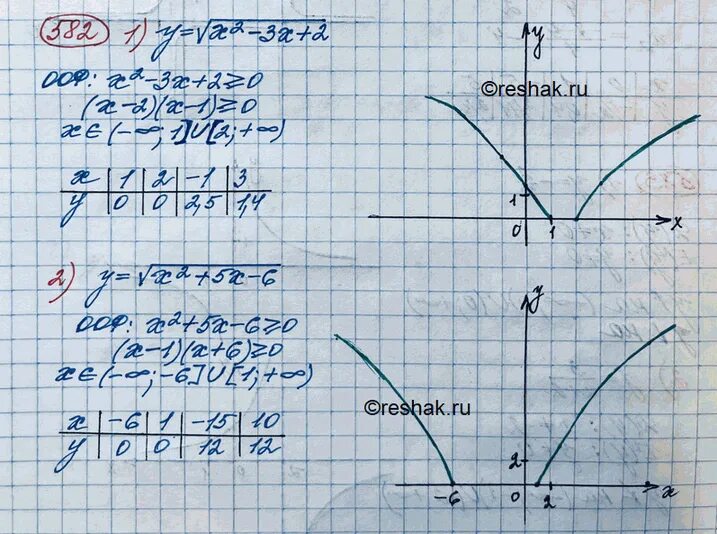 582 1) y=√x²-3x+2
ООФ: x²-3x+2≥0
(x-2)(x-1)≥0
x∈(-∞; 1]∪[2; +∞)
x | 1 | 2 | -1 | 3
y | 0 | 0 | 2,5 | 1,4
y
©reshak.ru
1
0 1 x
2) y=√x²+5x-6
ООФ: x²+5x-6≥0
(x-1)(x+6)≥0
x∈(-∞; -6]∪[1; +∞)
x | -6 | 1 | -15 | 10
y | 0 | 0 | 12 | 12
y
©reshak.ru
2
-6 0 2 x